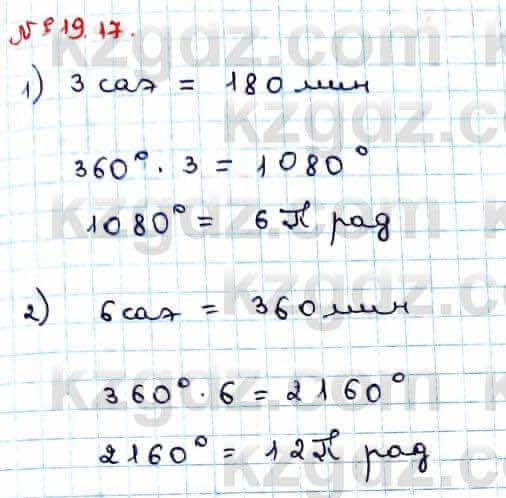 № 19.17.
1) 3 сағ = 180 мин
360° · 3 = 1080°
1080° = 6П рад
2) 6 сағ = 360 мин
360° · 6 = 2160°
2160° = 12П рад
kzgdz.com